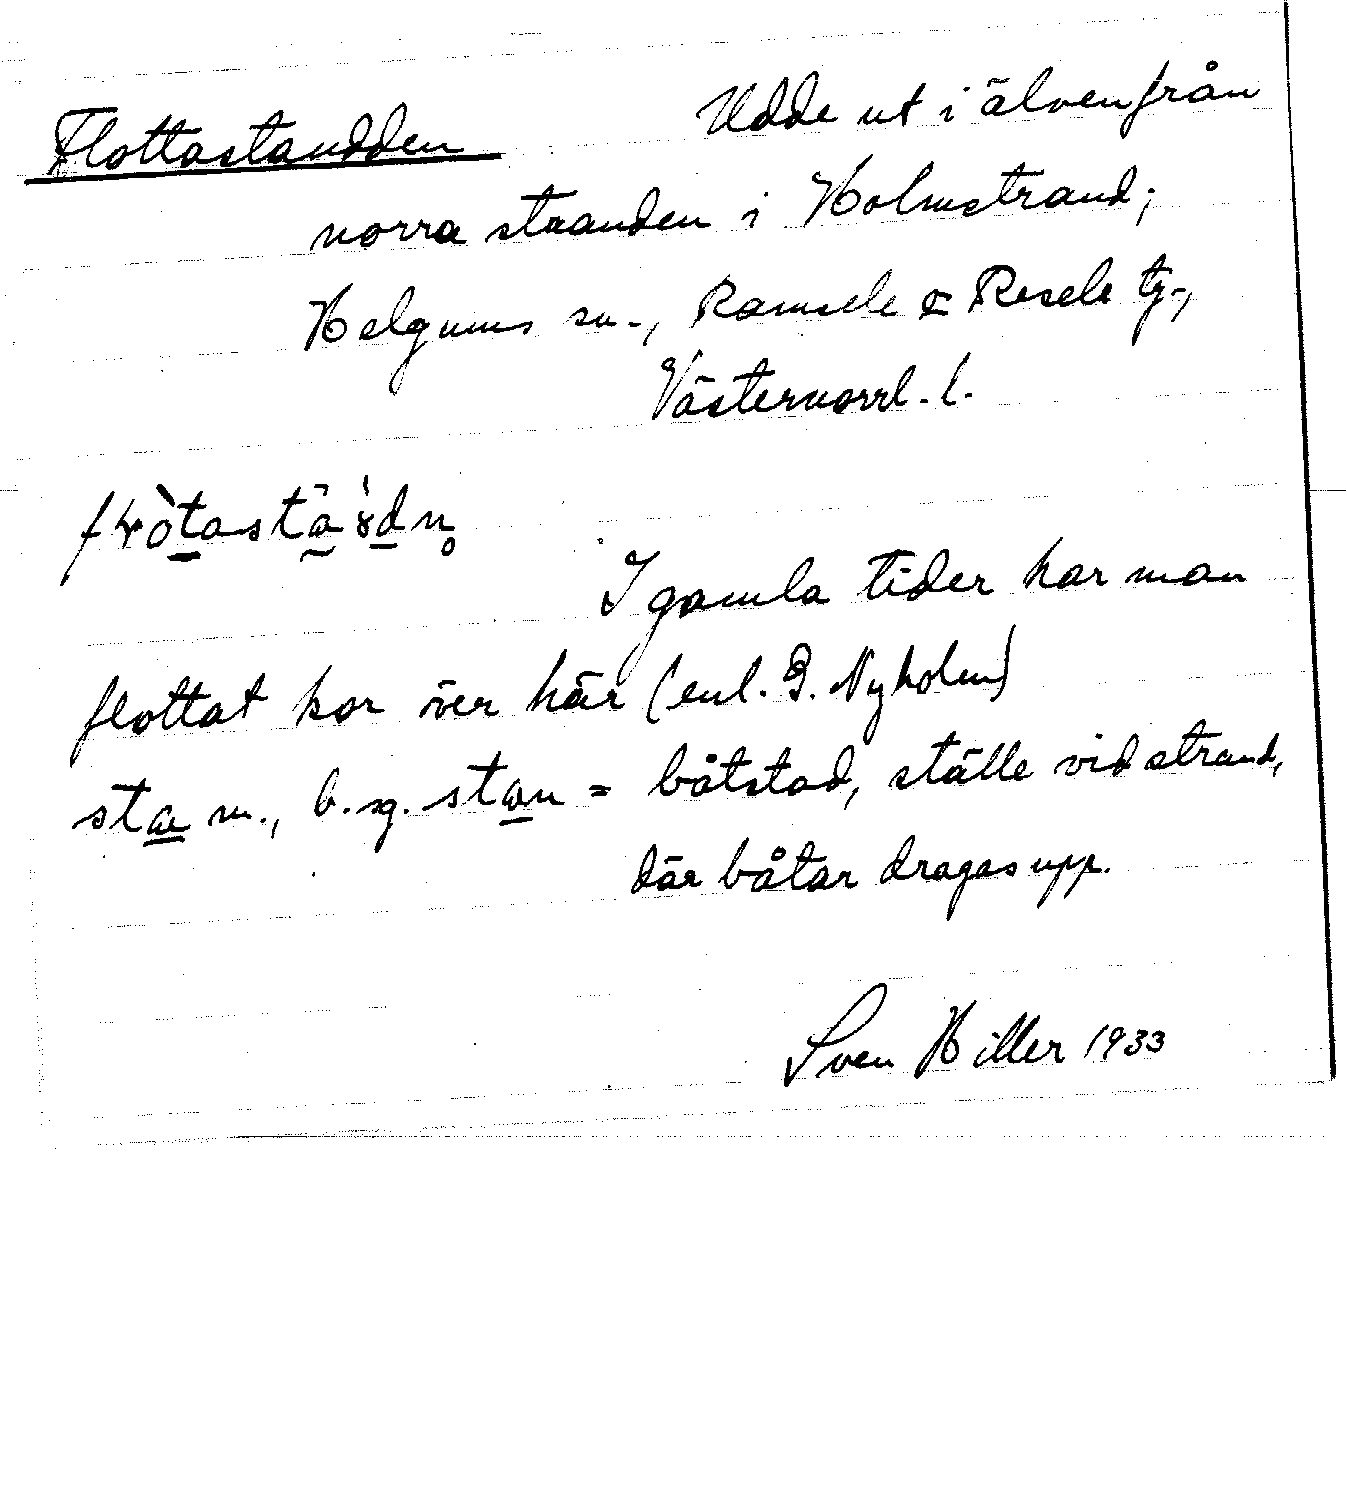 Flottastaudden Udde ut i älven från
norra stranden i Holmstrand;
Helgums sn., Ramsele & Resele tg.,
Västernorrl. l.
I gamla tider har man
flottat kor över här (enl. G. Nyholm)
sta m., b. sg. stan = båtstad, ställe vid strand,
där båtar dragas upp.
Sven Hiller 1933